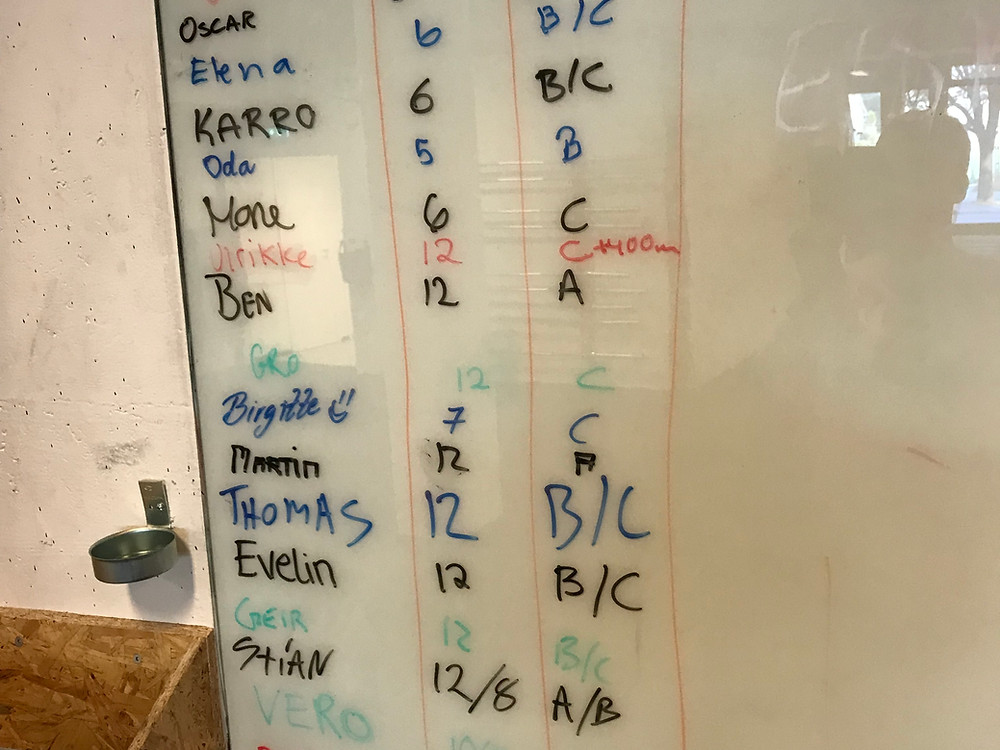 OSCAR
Elena 6 B/C
KARRO 6 B/C
Oda 5 B
Mone 6 C
Ulrikke 12 C+400m
BEN 12 A
GRO 12 C
Birgitte 7 C
MARTIN 12 A
THOMAS 12 B/C
Evelin 12 B/C
GEIR 12 B/C
STIAN 12/8 A/B
VERO